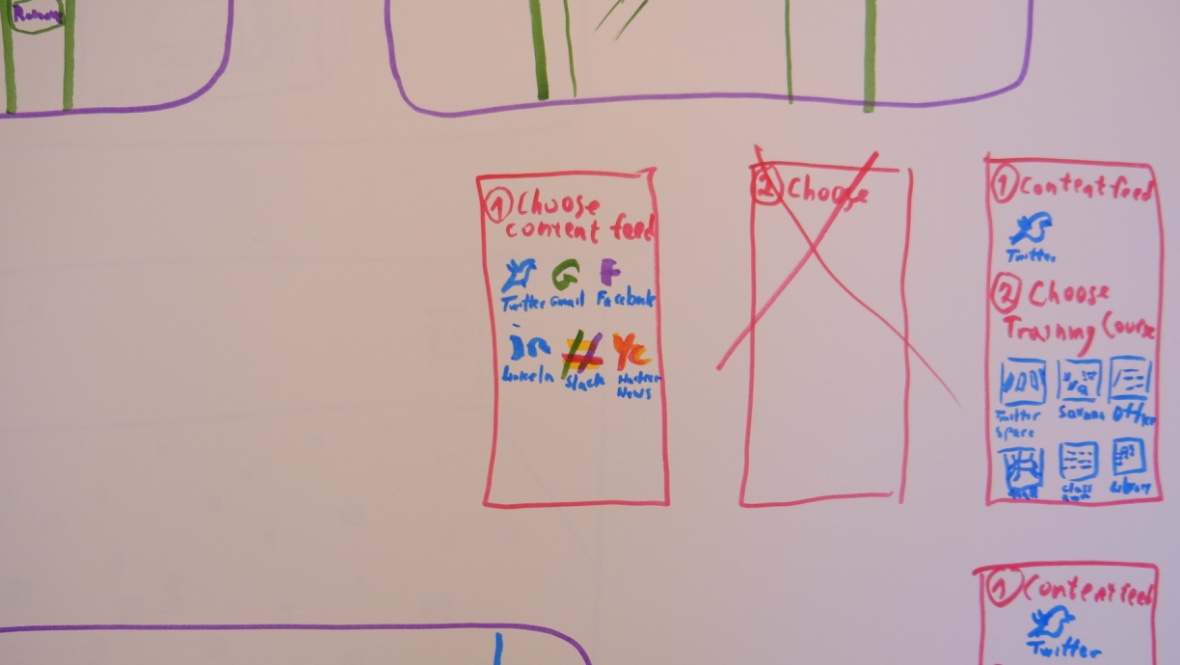 ① Choose
content feed
Twitter Gmail Facebook
in # Yc
LinkedIn Slack Hacker
News
② Choose
① Content feed
Twitter
② Choose
Training Course
Twitter
Space
Office
Class
Library
① Content feed
Twitter